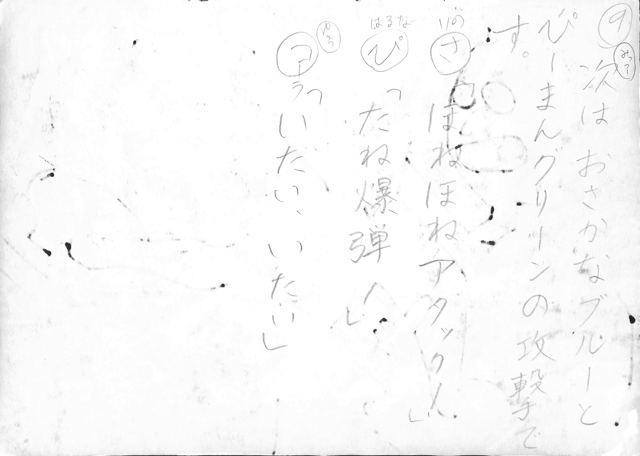 9
みって
次は おさかなブルーと
ぴーまんグリーンの攻撃で
す。
いの
さ「ほねほねアタック!」
はるな
ぴ「たね爆弾!」
ゆう
コ「いたい、いたい」